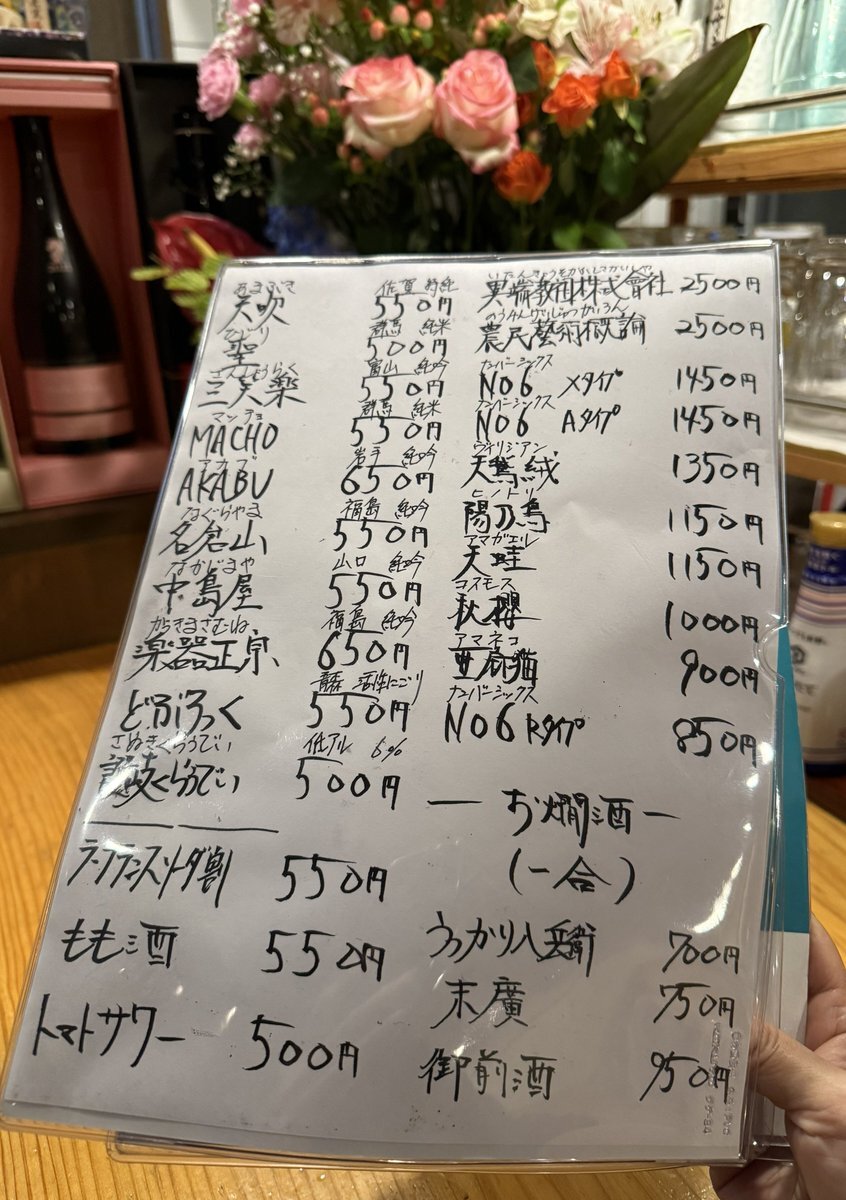 あまぶき 佐賀 特純
天吹 550円
ひじり 群馬 純米
聖 500円
さんしょうらく 富山 純吟
三笑楽 550円
マッチョ 群馬 純米
MACHO 550円
アカブ 岩手 純吟
AKABU 650円
なぐらやま 福島 純吟
名倉山 550円
なかじまや 山口 純吟
中島屋 550円
がっきまさむね 福島 純吟
楽器正宗 650円
青森 活性にごり
どぶろっく 550円
さぬきくらうでぃ 低アル 6%
讃岐くらうでぃ 500円
ラ・フランスソーダ割 550円
もも酒 550円
トマトサワー 500円
いたんきょうそかぶしきがいしゃ
異端教祖株式會社 2500円
のうみんげいじゅつがいろん
農民藝術概論 2500円
ナンバーシックス
NO6 Xタイプ 1450円
ナンバーシックス
NO6 Aタイプ 1450円
ヴィリジアン
天鵞絨 1350円
ヒノトリ
陽乃鳥 1150円
アマガエル
天蛙 1150円
コスモス
秋櫻 1000円
アマネコ
亜麻猫 900円
ナンバーシックス
NO6 Rタイプ 850円
ー お燗酒 ー
(一合)
うっかり八兵衛 700円
末廣 750円
御前酒 950円